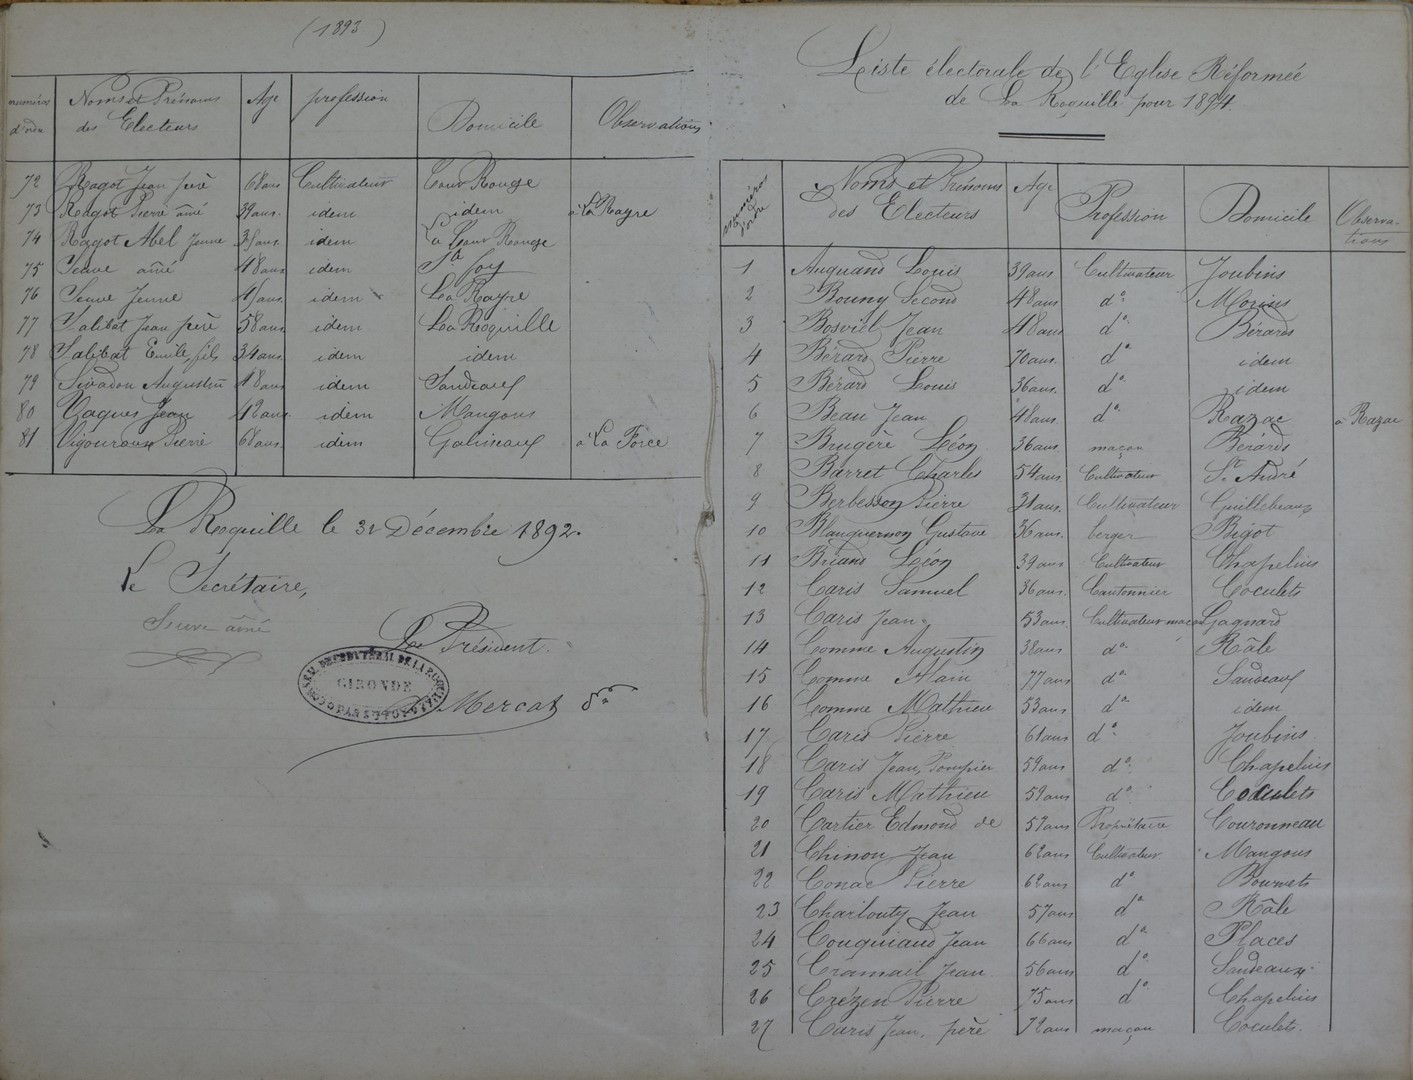 (1893)
numéro d'ordre | Noms et Prénoms des Electeurs | Age | profession | Domicile | Observations
72 Ragot Jean père 68 ans Cultivateur Cour Rouge
73 Ragot Pierre aîné 39 ans. idem idem à La Rayre
74 Ragot Abel Jeune 35 ans. idem La Cour Rouge
75 Seuve aîné 48 ans. idem Ste foy
76 Seuve Jeune 45 ans. idem La Rayre
77 Salibat Jean père 58 ans. idem La Roquille
78 Salibat Emile, fils 34 ans. idem idem
79 Sivadon Augustin 48 ans. idem Sandeaux
80 Vaques Jean 42 ans. idem Mangons
81 Vigouroux Pierre 68 ans. idem Galineaux à La Force
La Roquille le 31 Décembre 1892.
Le Secrétaire,
Seuve aîné
Le Président.
CONSEIL PRESBYTÉRAL DE LA ROQUILLE
GIRONDE
Mercat
Liste électorale de l'Eglise Réformée
de La Roquille pour 1894
numéros d'ordre | Noms et Prénoms des Electeurs | Age | Profession | Domicile | Observations
1 Auquand Louis 39 ans Cultivateur Joubins
2 Bouny Second 48 ans d° Morins
3 Bosviel Jean 48 ans d° Bérards
4 Bérard Pierre 70 ans. d° idem
5 Bérard Louis 36 ans. d° idem
6 Beau Jean 48 ans. d° Razac à Razac
7 Brugère Léon 36 ans maçon Bérards
8 Barret Charles 54 ans. Cultivateur St André
9 Berbesson Pierre 31 ans. Cultivateur Guillebeaux
10 Blanquernon Gustave 36 ans. berger Bigot
11 Briand Léon 39 ans Cultivateur Chapelins
12 Caris Samuel 36 ans. Cantonnier Coculets
13 Caris Jean 53 ans. Cultivateur maçon Gagnard
14 Comme Augustin 38 ans d° Râle
15 Comme Alain 77 ans d° Sandeaux
16 Comme Mathieu 53 ans d° idem
17 Caris Pierre 61 ans d° Joubins
18 Caris Jean, Pompier 59 ans d° Chapelins
19 Caris Mathieu 59 ans d° Coculets
20 Cartier Edmond de 57 ans Propriétaire Couronneau
21 Chinon Jean 62 ans Cultivateur Mangons
22 Conac Pierre 62 ans d° Bournets
23 Charlouty Jean 57 ans d° Râle
24 Couquiaud Jean 66 ans d° Places
25 Cramail Jean 56 ans d° Sandeaux
26 Crézen Pierre 75 ans d° Chapelins
27 Caris Jean, père 72 ans maçon Coculets.